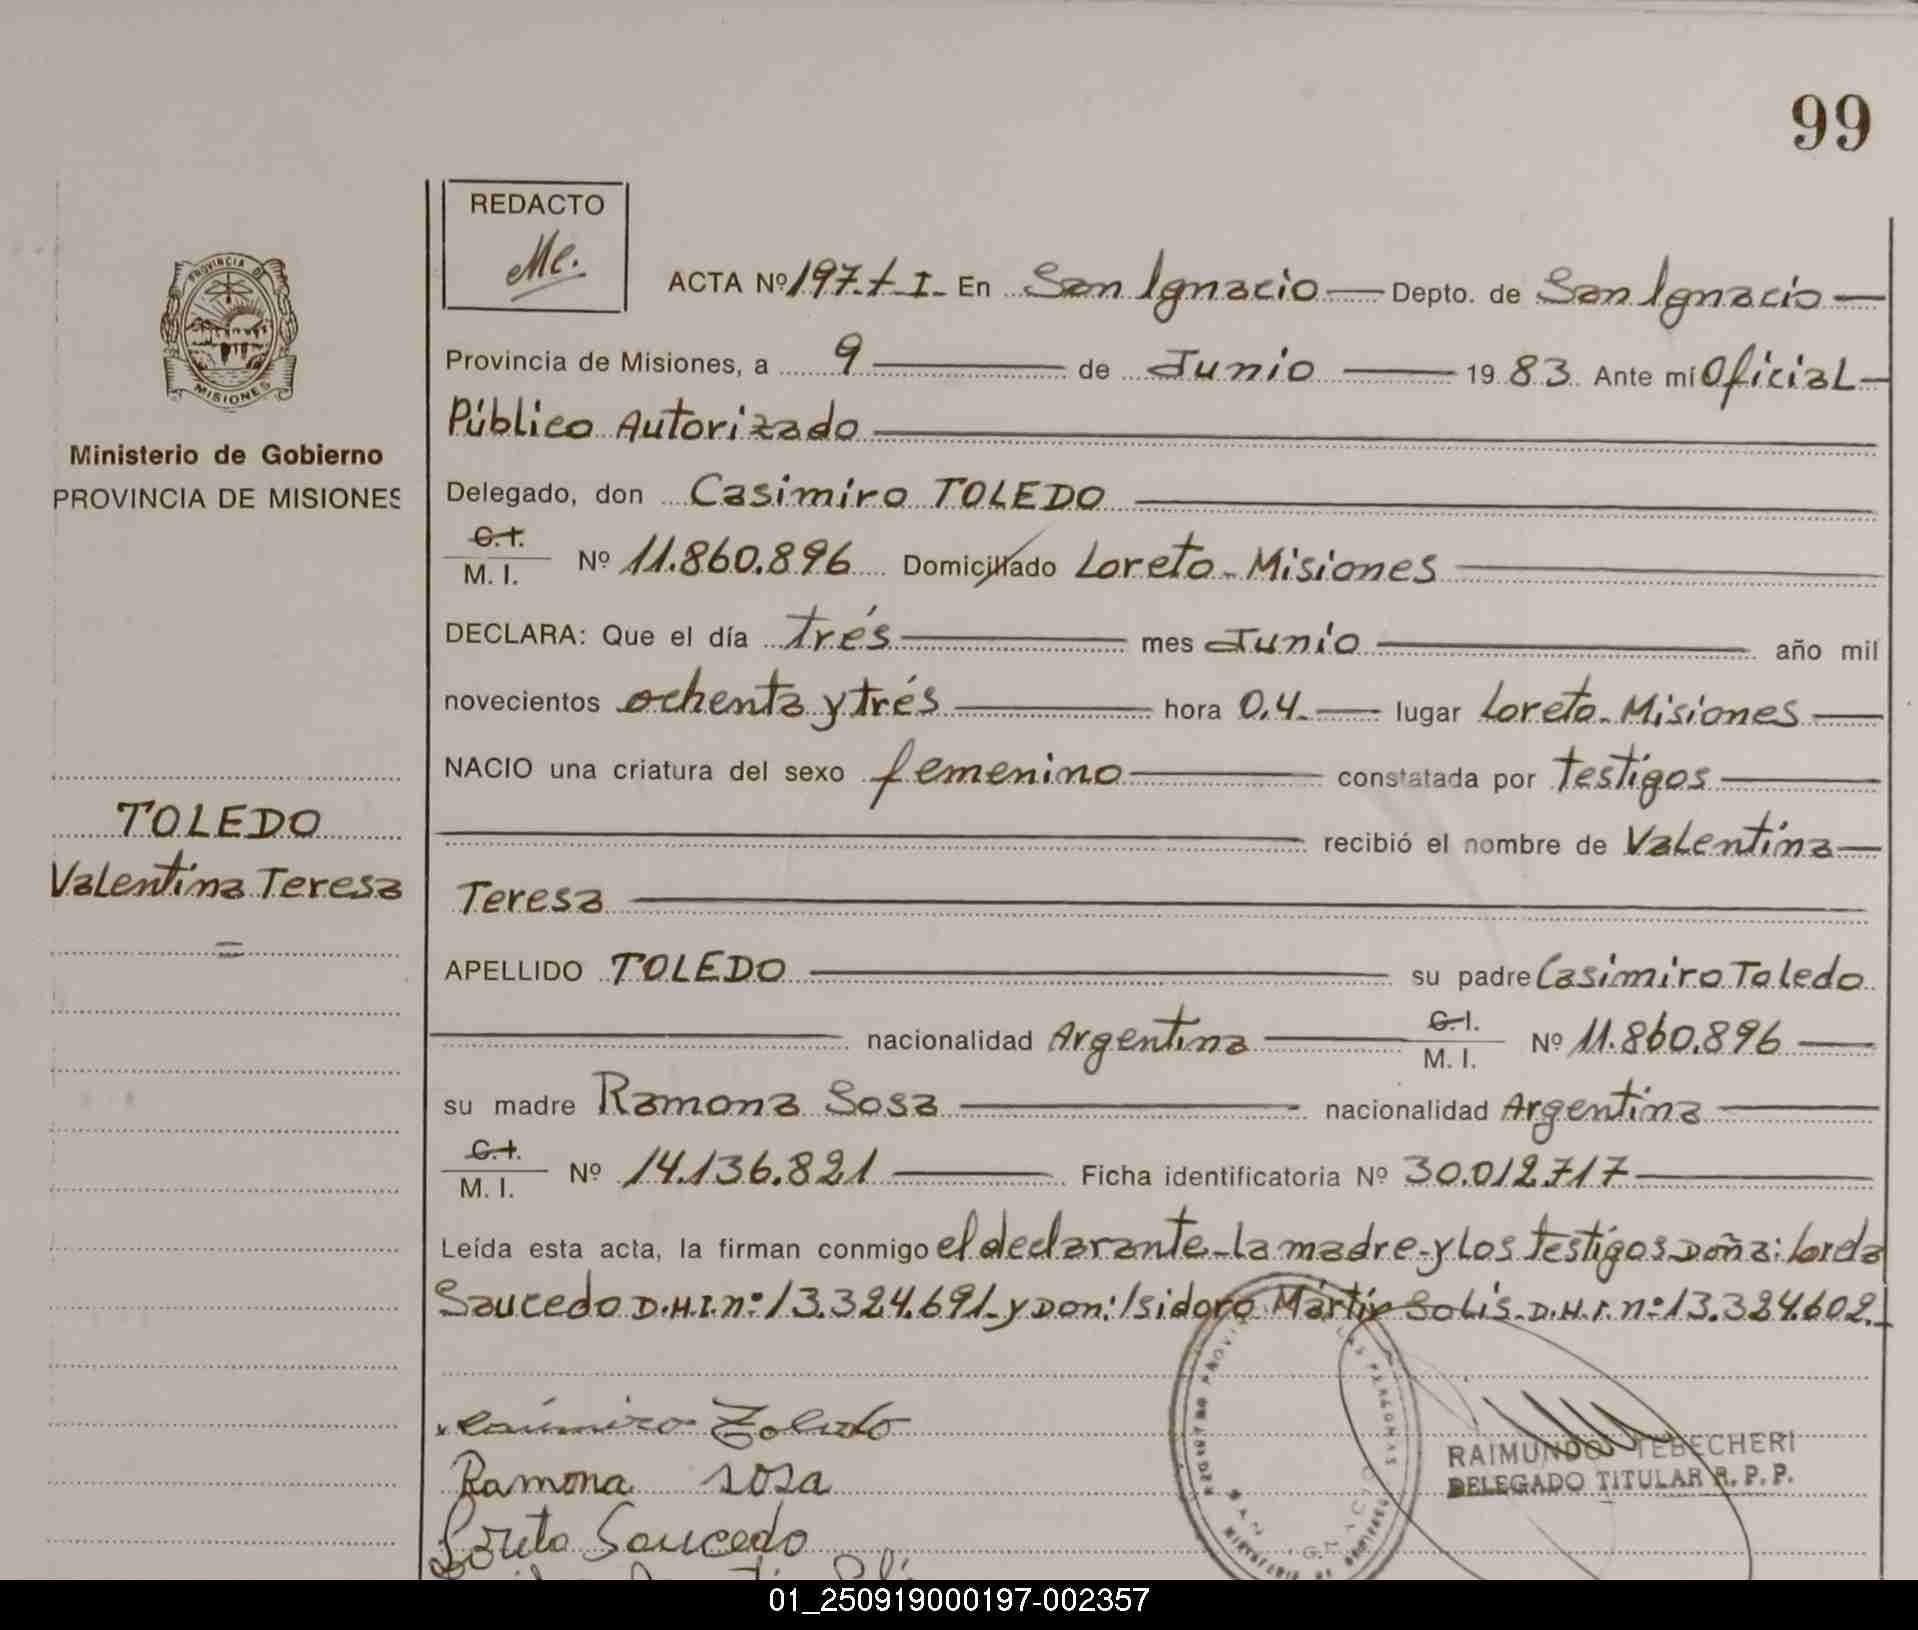 99
REDACTO
Me.
PROVINCIA D
MISIONES
ACTA Nº 197. t I. En San Ignacio Depto. de San Ignacio
Provincia de Misiones, a 9 de Junio 1983. Ante mí Oficial
Público Autorizado
Ministerio de Gobierno
PROVINCIA DE MISIONES
Delegado, don Casimiro TOLEDO
C.I.
M. I. Nº 11.860.896 Domiciliado Loreto - Misiones
DECLARA: Que el día trés mes Junio año mil
novecientos ochenta y trés hora 0,4. lugar Loreto - Misiones
NACIO una criatura del sexo femenino constatada por testigos
TOLEDO
Valentina Teresa
recibió el nombre de Valentina
Teresa
APELLIDO TOLEDO su padre Casimiro Toledo
nacionalidad Argentina C.I. M. I. Nº 11.860.896
su madre Ramona Sosa nacionalidad Argentina
C.I.
M. I. Nº 14.136.821 Ficha identificatoria Nº 30.012.717
Leída esta acta, la firman conmigo el declarante - la madre - y los testigos Doña:
Saucedo D.N.I. nº 13.324.691 - y Don: Isidoro Martín Solis - D.N.I. nº 13.324.602.
Casimiro Toledo
Ramona sosa
Loreto Saucedo
RAIMUNDO TEBECHERI
DELEGADO TITULAR R. P. P.
01_250919000197-002357